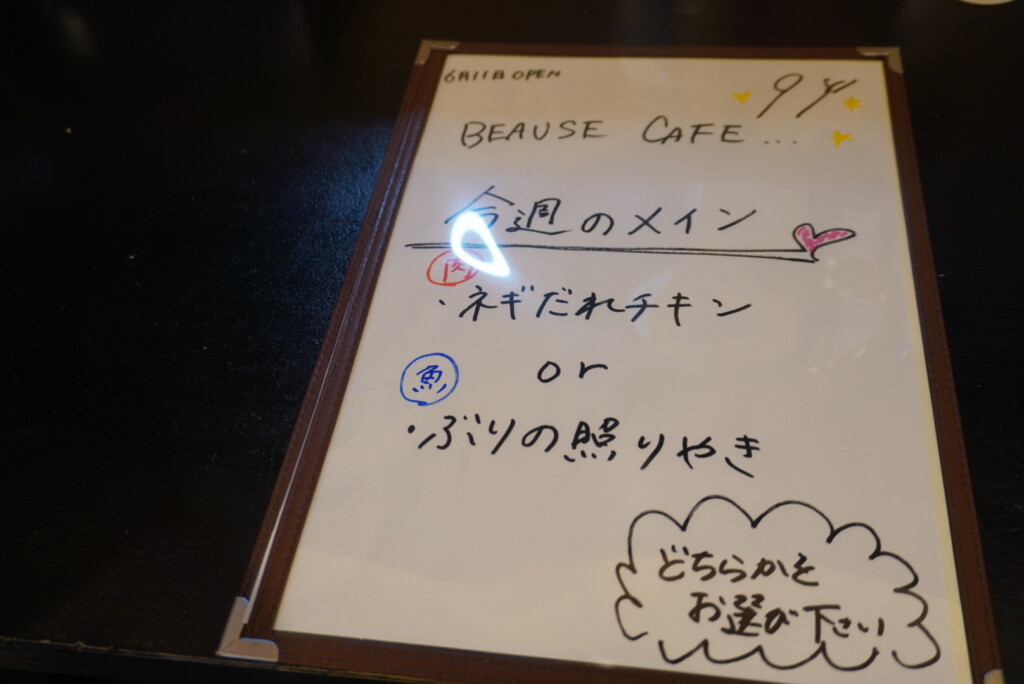 6月11日 OPEN
94
BEAUSE CAFE...
今週のメイン
肉
・ネギだれチキン
or
魚
・ぶりの照りやき
どちらかを
お選び下さい